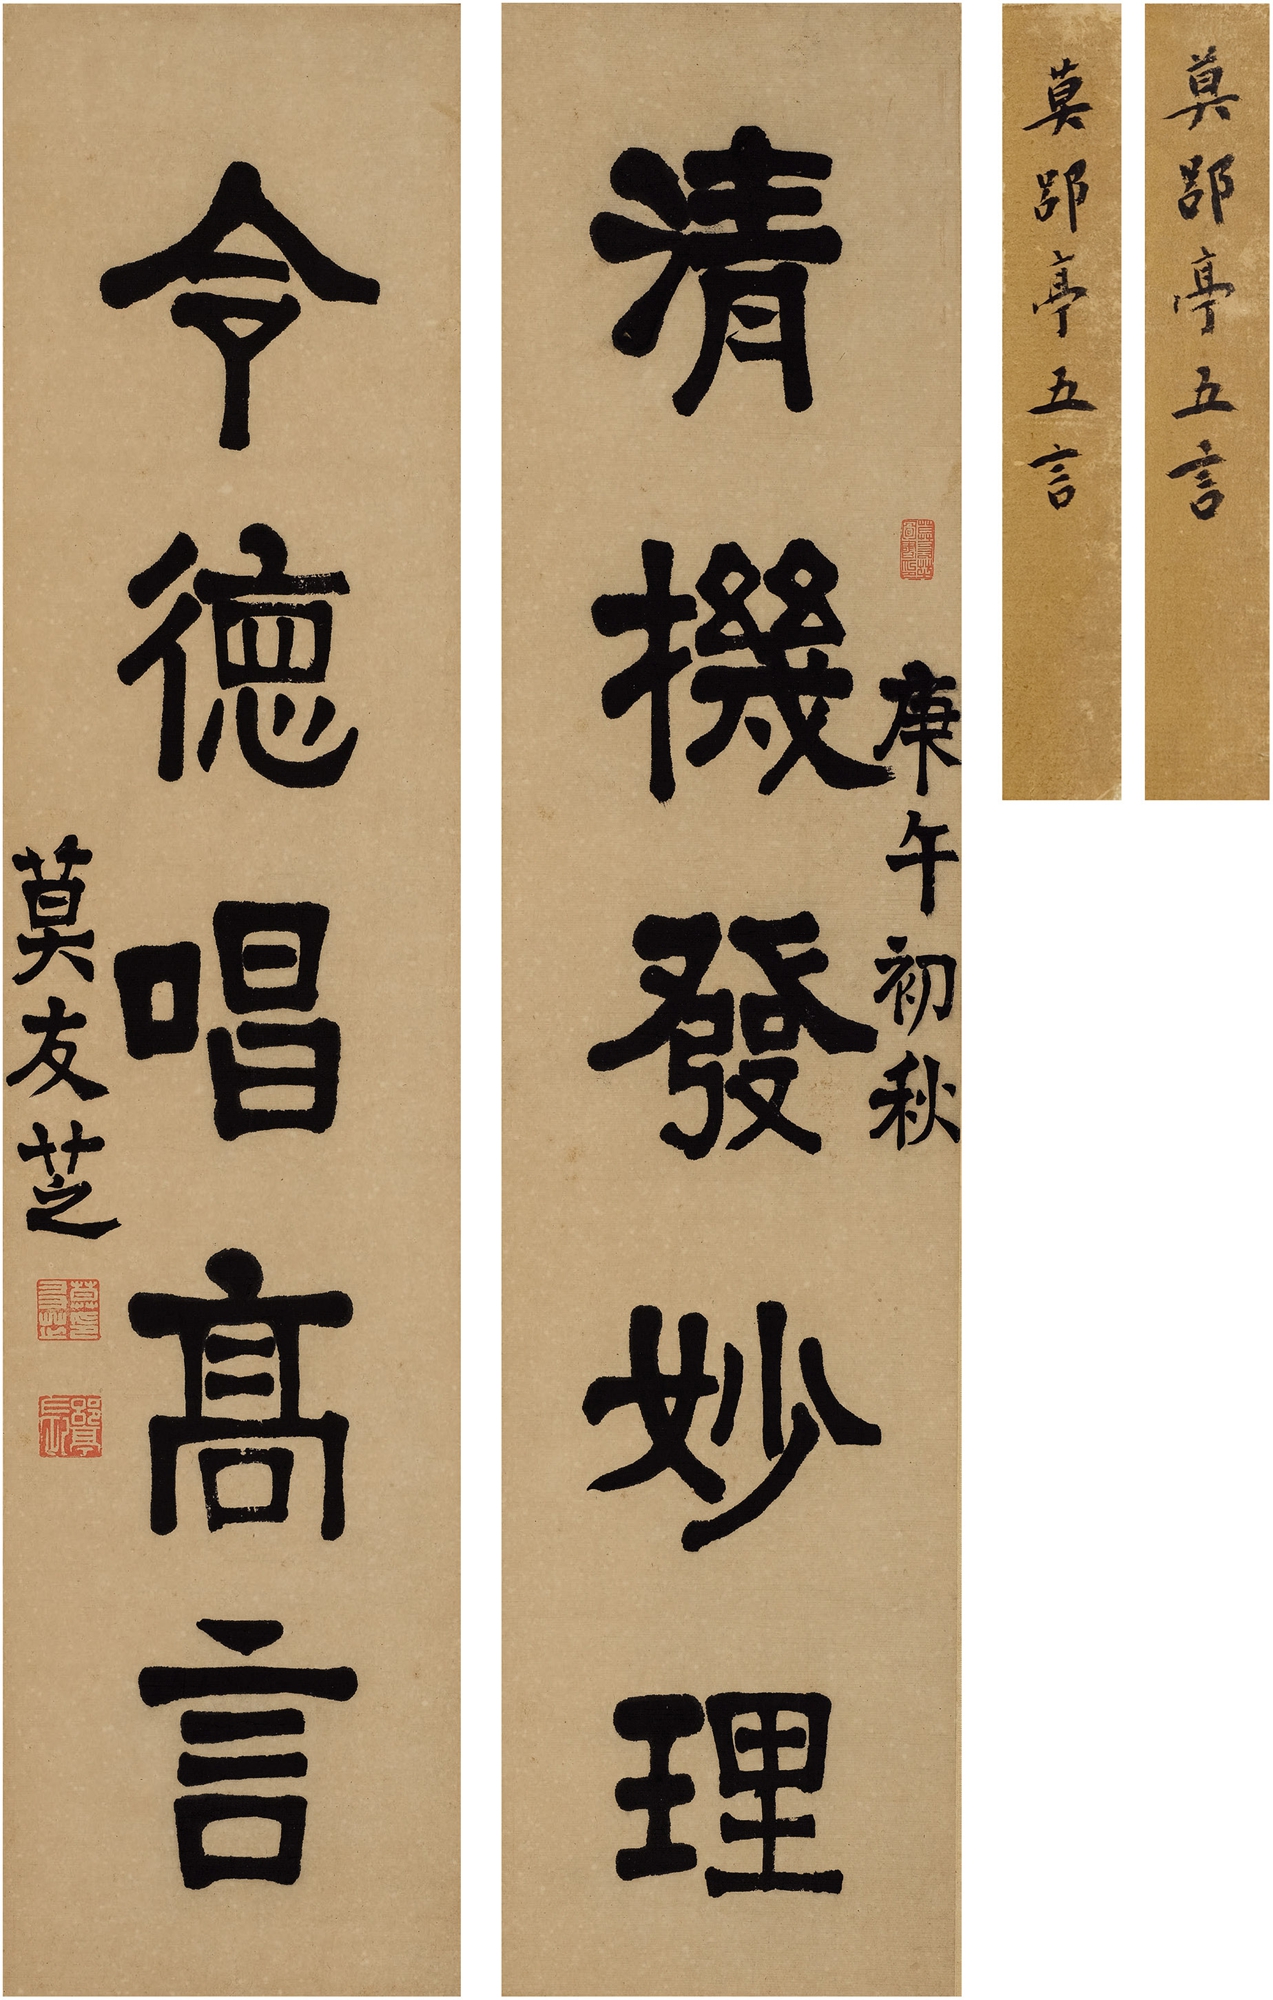 莫郘亭五言
莫郘亭五言
庚午初秋
清機發妙理
令德唱高言
莫友芝
莫友芝
郘亭長